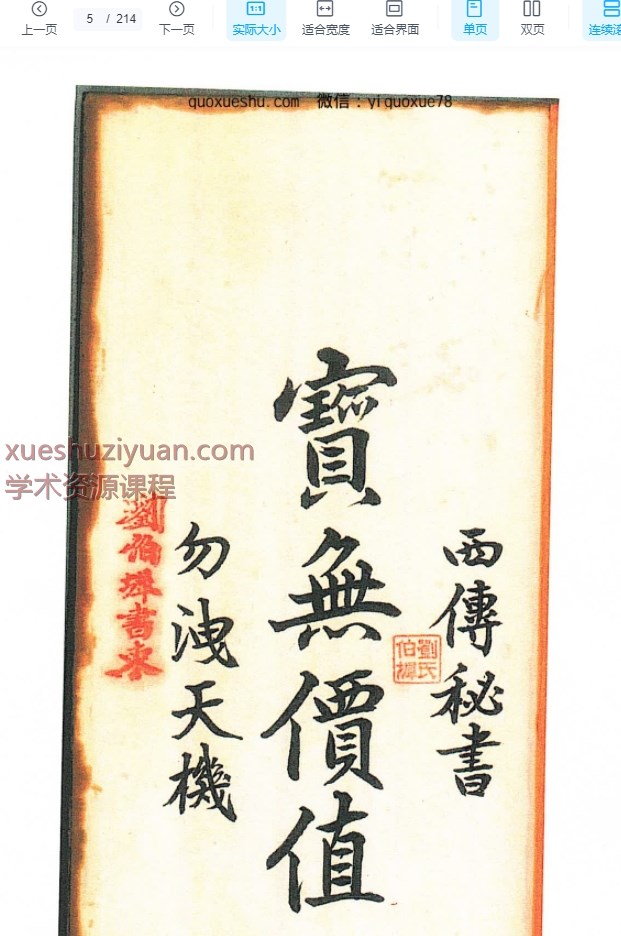 上一页
5 / 214
下一页
实际大小
适合宽度
适合界面
单页
双页
连续滚
quoxueshu.com 微信：yiguoxue78
西傳秘書
寶無價值
勿洩天機
劉伯
書柬
劉氏伯
xueshuziyuan.com
学术资源课程